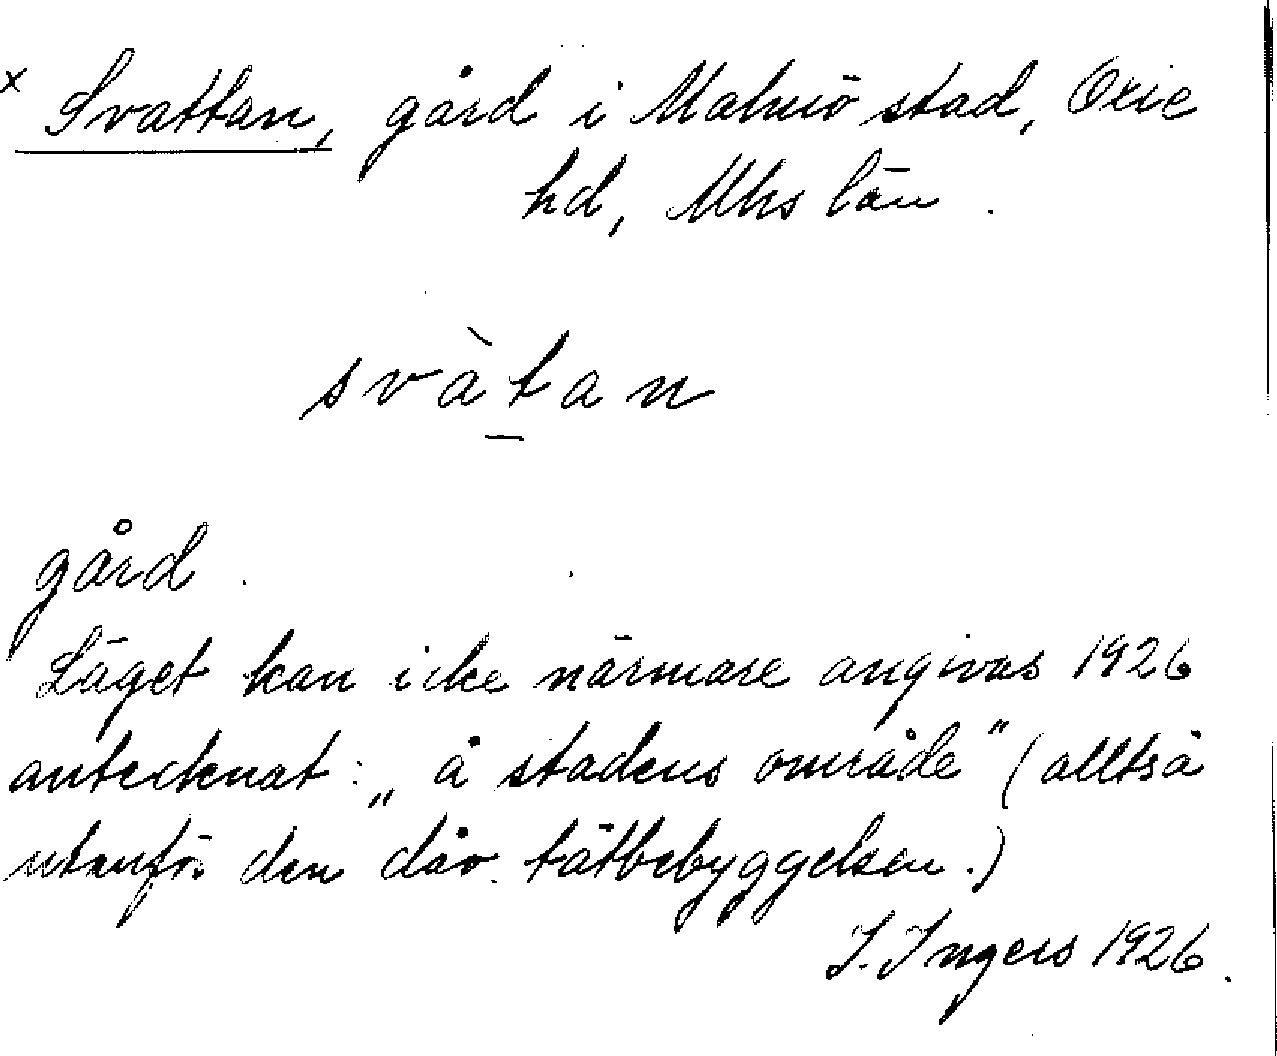 x Svattan, gård i Malmö stad, Oxie
hd, Mhs län.
svàtan
gård.
Läget kan icke närmare angivas 1926
antecknat: „å stadens område" (alltså
utanför den dåv. tätbebyggelsen.)
I. Ingers 1926.